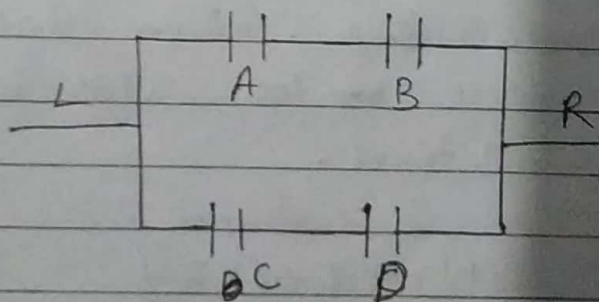 A B
L R
C D